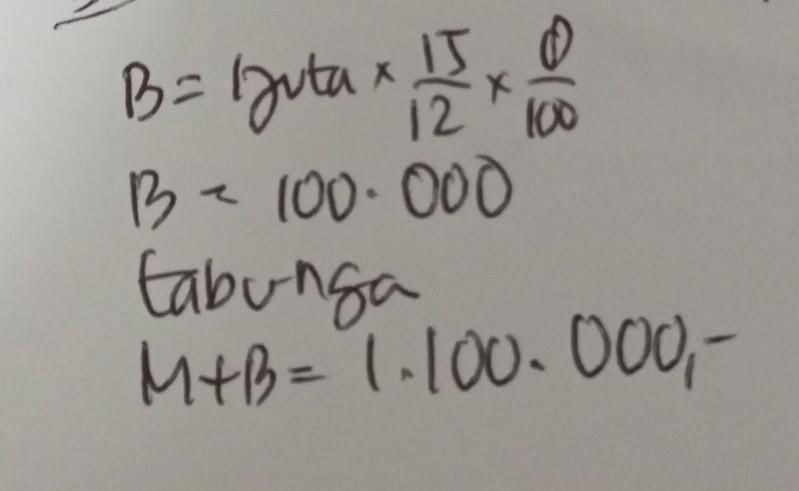 B = 1 juta × 15/12 × 8/100
B = 100.000
tabunga
M+B = 1.100.000,-